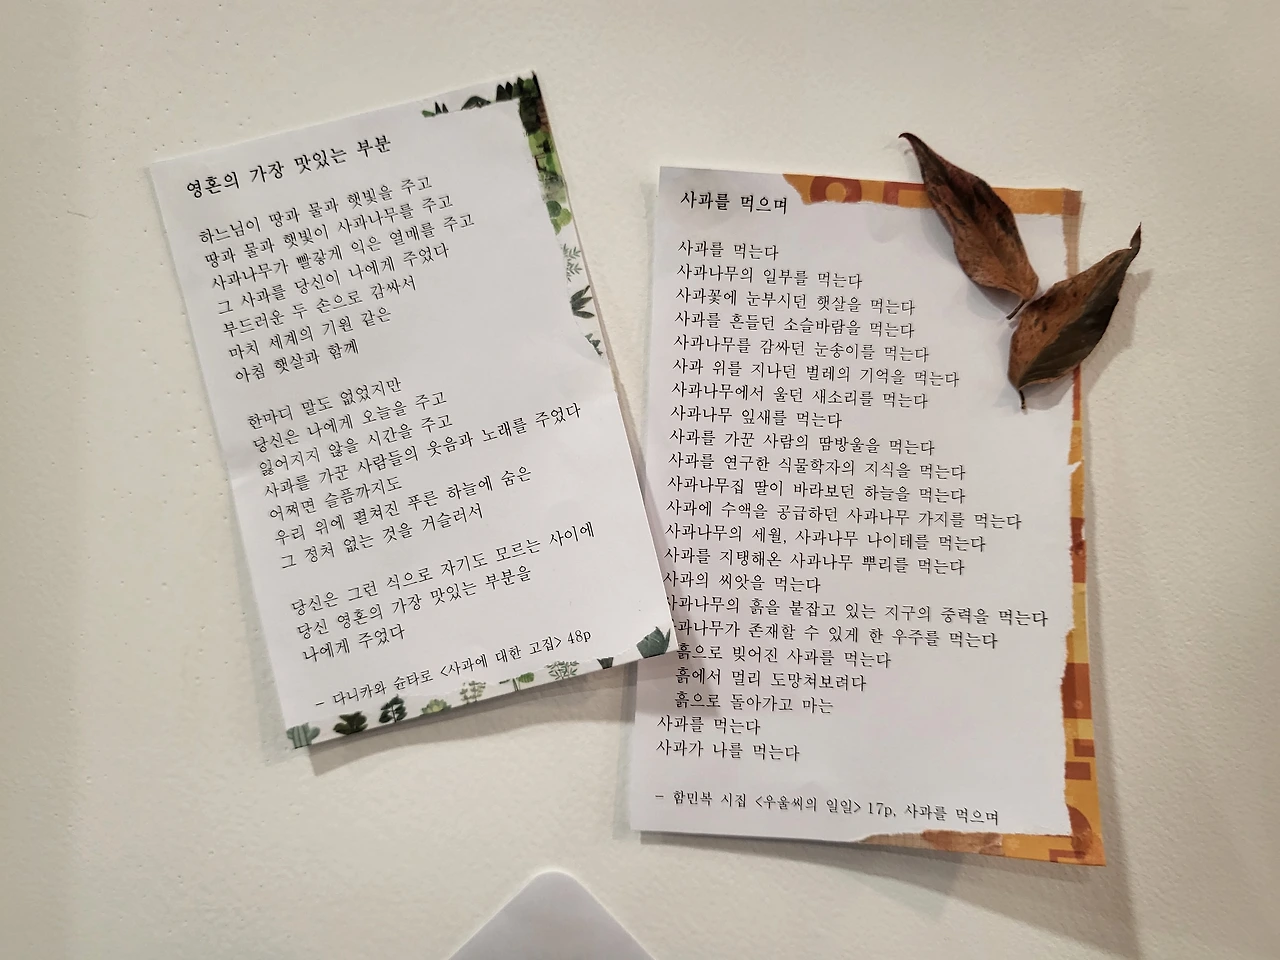 영혼의 가장 맛있는 부분
하느님이 땅과 물과 햇빛을 주고
땅과 물과 햇빛이 사과나무를 주고
사과나무가 빨갛게 익은 열매를 주고
그 사과를 당신이 나에게 주었다
부드러운 두 손으로 감싸서
마치 세계의 기원 같은
아침 햇살과 함께
한마디 말도 없었지만
당신은 나에게 오늘을 주고
잃어지지 않을 시간을 주고
사과를 가꾼 사람들의 웃음과 노래를 주었다
어쩌면 슬픔까지도
우리 위에 펼쳐진 푸른 하늘에 숨은
그 정처 없는 것을 거슬러서
당신은 그런 식으로 자기도 모르는 사이에
당신 영혼의 가장 맛있는 부분을
나에게 주었다
- 다니카와 슌타로 <사과에 대한 고집> 48p
사과를 먹으며
사과를 먹는다
사과나무의 일부를 먹는다
사과꽃에 눈부시던 햇살을 먹는다
사과를 흔들던 소슬바람을 먹는다
사과나무를 감싸던 눈송이를 먹는다
사과 위를 지나던 벌레의 기억을 먹는다
사과나무에서 울던 새소리를 먹는다
사과나무 잎새를 먹는다
사과를 가꾼 사람의 땀방울을 먹는다
사과를 연구한 식물학자의 지식을 먹는다
사과나무집 딸이 바라보던 하늘을 먹는다
사과에 수액을 공급하던 사과나무 가지를 먹는다
사과나무의 세월, 사과나무 나이테를 먹는다
사과를 지탱해온 사과나무 뿌리를 먹는다
사과의 씨앗을 먹는다
사과나무의 흙을 붙잡고 있는 지구의 중력을 먹는다
사과나무가 존재할 수 있게 한 우주를 먹는다
흙으로 빚어진 사과를 먹는다
흙에서 멀리 도망쳐보려다
흙으로 돌아가고 마는
사과를 먹는다
사과가 나를 먹는다
- 함민복 시집 <우울씨의 일일> 17p, 사과를 먹으며